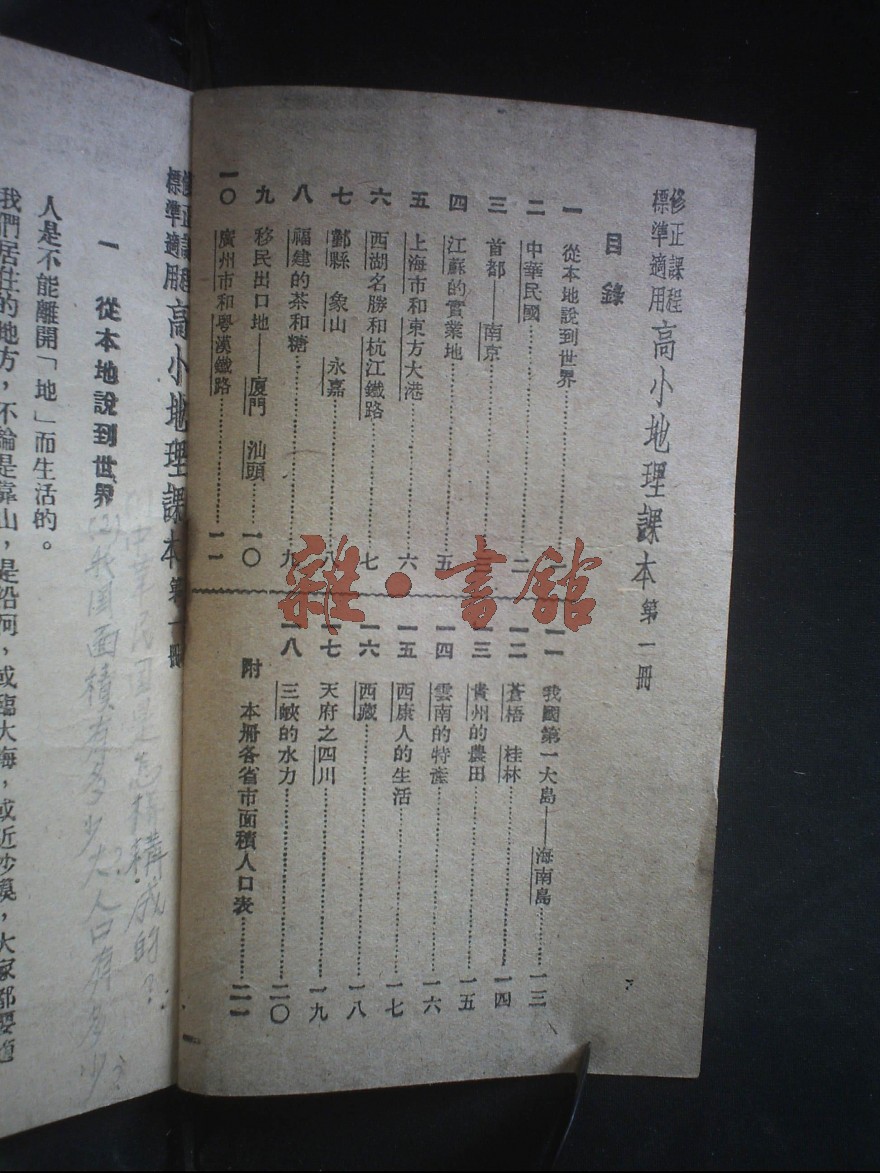 修正課程
標準適用
高小地理課本 第一冊
目錄
一 從本地說到世界
二 中華民國 二
三 首都——南京
四 江蘇的實業地 五
五 上海市和東方大港 六
六 西湖名勝和杭江鐵路 七
七 鄞縣 象山 永嘉 八
八 福建的茶和糖 九
九 移民出口地——廈門 汕頭 一〇
一〇 廣州市和粵漢鐵路 一一
一一 我國第一大島——海南島 一三
一二 蒼梧 桂林 一四
一三 貴州的農田 一五
一四 雲南的特產 一六
一五 西康人的生活 一七
一六 西藏 一八
一七 天府之四川 一九
一八 三峽的水力 二〇
附 本冊各省市面積人口表 二一
雜·書館
修正課程
標準適用
高小地理課本 第一冊
中華民國是怎樣構成的?
一 從本地說到世界
(2)我国面積有多少大?人口有多少?
人是不能離開「地」而生活的。
我們居住的地方,不論是靠山,是沿河,或臨大海,或近沙漠,大家都要